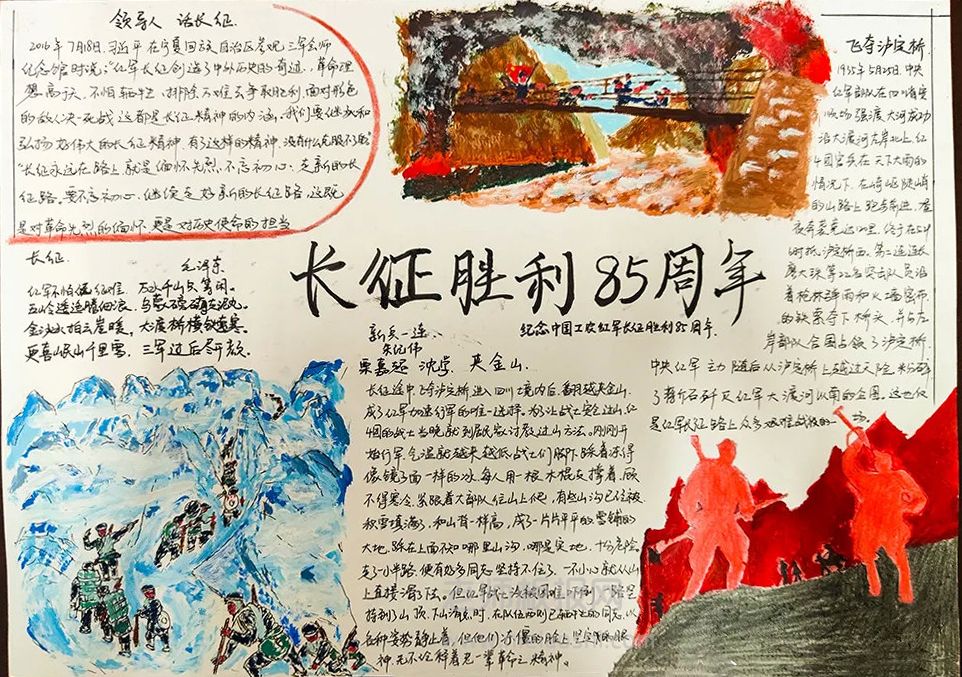 领导人 话长征
2016年7月18日,习近平在宁夏回族自治区参观三军会师
纪念馆时说:"红军长征创造了中外历史的奇迹。革命理
想高于天,不怕牺牲、排除万难去争取胜利,面对形色
的敌人决一死战,这都是长征精神的内涵。我们要继承和
弘扬好伟大的长征精神。有了这样的精神,没有什么克服不了。"
"长征永远在路上。就是缅怀先烈、不忘初心,走新的长
征路。要不忘初心,继续走好新的长征路,这既
是对革命先烈的缅怀,更是对历史使命的担当
飞夺泸定桥
1935年5月25日,中央
红军部队在四川省安
顺场强渡大河成功
沿大渡河左岸北上,红
4团官兵在天下大雨的
情况下,在崎岖陡峭
的山路上跑步前进,
夜奔袭竟达120里,终于在5时
时抵泸定桥西。第二连连长
廖大珠等22名突击队员沿
着枪林弹雨和火墙密布
的铁索夺下桥头,并与左
岸部队合围占领了泸定桥。
中央红军主力随后从泸定桥上越过天险,粉碎
了蒋介石歼灭红军大渡河以南的企图。这也仅
是红军长征路上众多艰难战役的一
长征
毛泽东
红军不怕远征难,万水千山只等闲。
五岭逶迤腾细浪,乌蒙磅礴走泥丸。
金沙水拍云崖暖,大渡桥横铁索寒。
更喜岷山千里雪,三军过后尽开颜。
长征胜利85周年
纪念中国工农红军长征胜利85周年
新兵一连
栗嘉 沈 夹金山
长征途中,飞夺泸定桥进入四川境内后,翻越夹金山
成了红军加速行军的唯一选择。为了让战士安全过山,红
4团的战士当晚就到居民家讨教过山方法。刚刚开
始行军,气温就越来越低,战士们脚下踩着冻得
像镜子面一样的冰,每人用一根木棍支撑着,顾
不得寒冷,紧跟着大部队往山上爬,有些山沟已经被
积雪填满了,和山背一样高,成了一片片平平的雪铺的
大地,踩在上面不知哪里山沟,哪是实地,十分危险。
走了一小半路,便有好多同志坚持不住了,一不小心就从山
上直接滑了下去。但红军战士没被困难
持到了山顶,下山途中时,在队伍两侧已牺牲的同志,以
各种姿势静止着,但他们冻僵的脸上坚毅的眼
神,无不诠释着老一辈革命之精神。